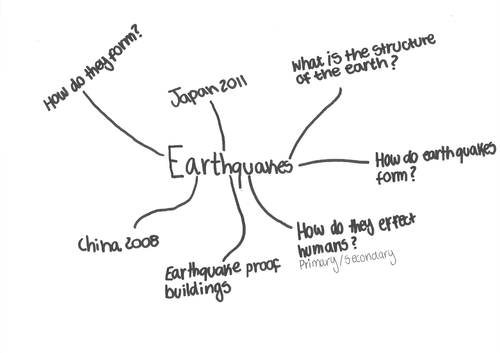 How do they form?
Japan 2011
What is the structure
of the earth?
Earthquakes
How do earthquakes
form?
China 2008
Earthquake proof
buildings
How do they effect
humans?
Primary/Secondary